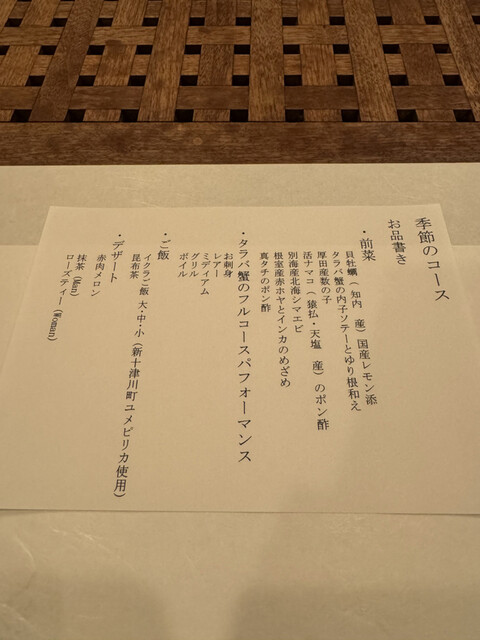 季節のコース
お品書き
・前菜
貝牡蠣（知内　産）国産レモン添
タラバ蟹の内子ソテーとゆり根和え
厚田産数の子
活ナマコ（猿払・天塩　産）のポン酢
別海産北海シマエビ
根室産赤ホヤとインカのめざめ
真タチのポン酢
・タラバ蟹のフルコースパフォーマンス
お刺身
レアー
ミディアム
グリル
ボイル
・ご飯
イクラご飯 大・中・小（新十津川町ユメピリカ使用）
昆布茶
・デザート
赤肉メロン
抹茶（Man）
ローズティー（Woman）